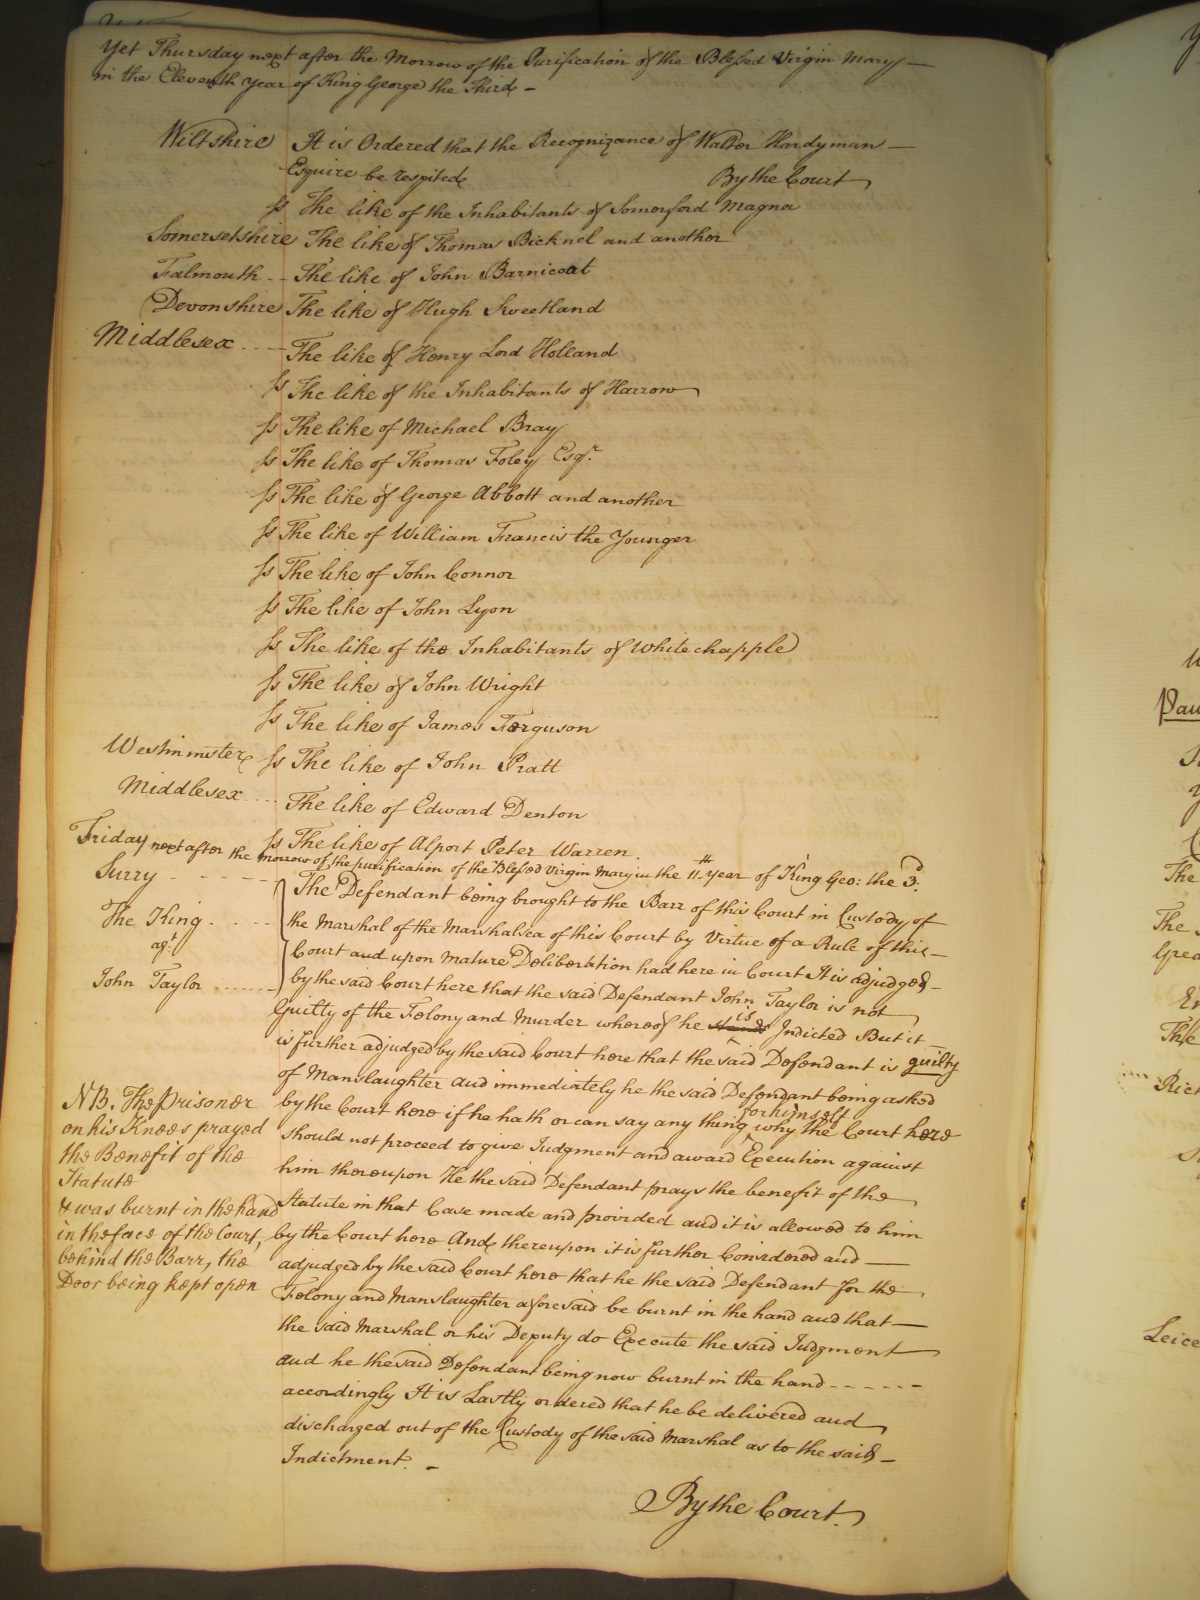 Yet Thursday next after the Morrow of the Purification of the Blessed Virgin Mary —
in the Eleventh Year of King George the Third -
Wiltshire It is Ordered that the Recognizance of Walter Hardyman —
Esquire be respited By the Court
ss The like of the Inhabitants of Somerford Magna
Somersetshire The like of Thomas Bicknel and another
Falmouth -- The like of John Barnicoat
Devonshire The like of Hugh Sweetland
Middlesex ---- The like of Henry Lord Holland
ss The like of the Inhabitants of Harrow
ss The like of Michael Bray
ss The like of Thomas Foley Esqr.
ss The like of George Abbott and another
ss The like of William Francis the Younger
ss The like of John Connor
ss The like of John Lyon
ss The like of the Inhabitants of Whitechapple
ss The like of John Wright
ss The like of James Ferguson
Westminster ss The like of John Pratt
Middlesex ---- The like of Edward Denton
ss The like of Alport Peter Warren.
Friday next after the Morrow of the purification of the Blessed Virgin Mary in the 11th year of King Geo: the 3d.
Surry - - - - - -
The King - - - -
agt
John Taylor -------
The Defendant being brought to the Barr of this Court in Custody of
the Marshal of the Marshalsea of this Court by Virtue of a Rule of this —
Court and upon mature Deliberation had here in Court It is adjudged —
by the said Court here that the said Defendant John Taylor is not
Guilty of the Felony and Murder whereof he is Indicted But it —
is further adjudged by the said Court here that the said Defendant is guilty
of Manslaughter and immediately he the said Defendant being asked
by the Court here if he hath or can say any thing for himself why the Court here
should not proceed to give Judgment and award Execution against
him thereupon He the said Defendant prays the benefit of the
Statute in that Case made and provided and it is allowed to him
by the Court here And thereupon it is further Considered and —
adjudged by the said Court here that he the said Defendant for the
Felony and Manslaughter aforesaid be burnt in the hand and that —
the said Marshal or his Deputy do Execute the said Judgment
and he the said Defendant being now burnt in the hand ------
accordingly It is Lastly ordered that he be delivered and
discharged out of the Custody of the said Marshal as to the said —
Indictment. -
By the Court.
NB. The prisoner
on his Knees prayed
the Benefit of the
Statute
& was burnt in the hand
in the face of the Court,
behind the Barr, the
Door being kept open
The
The
Grea
The
Leice